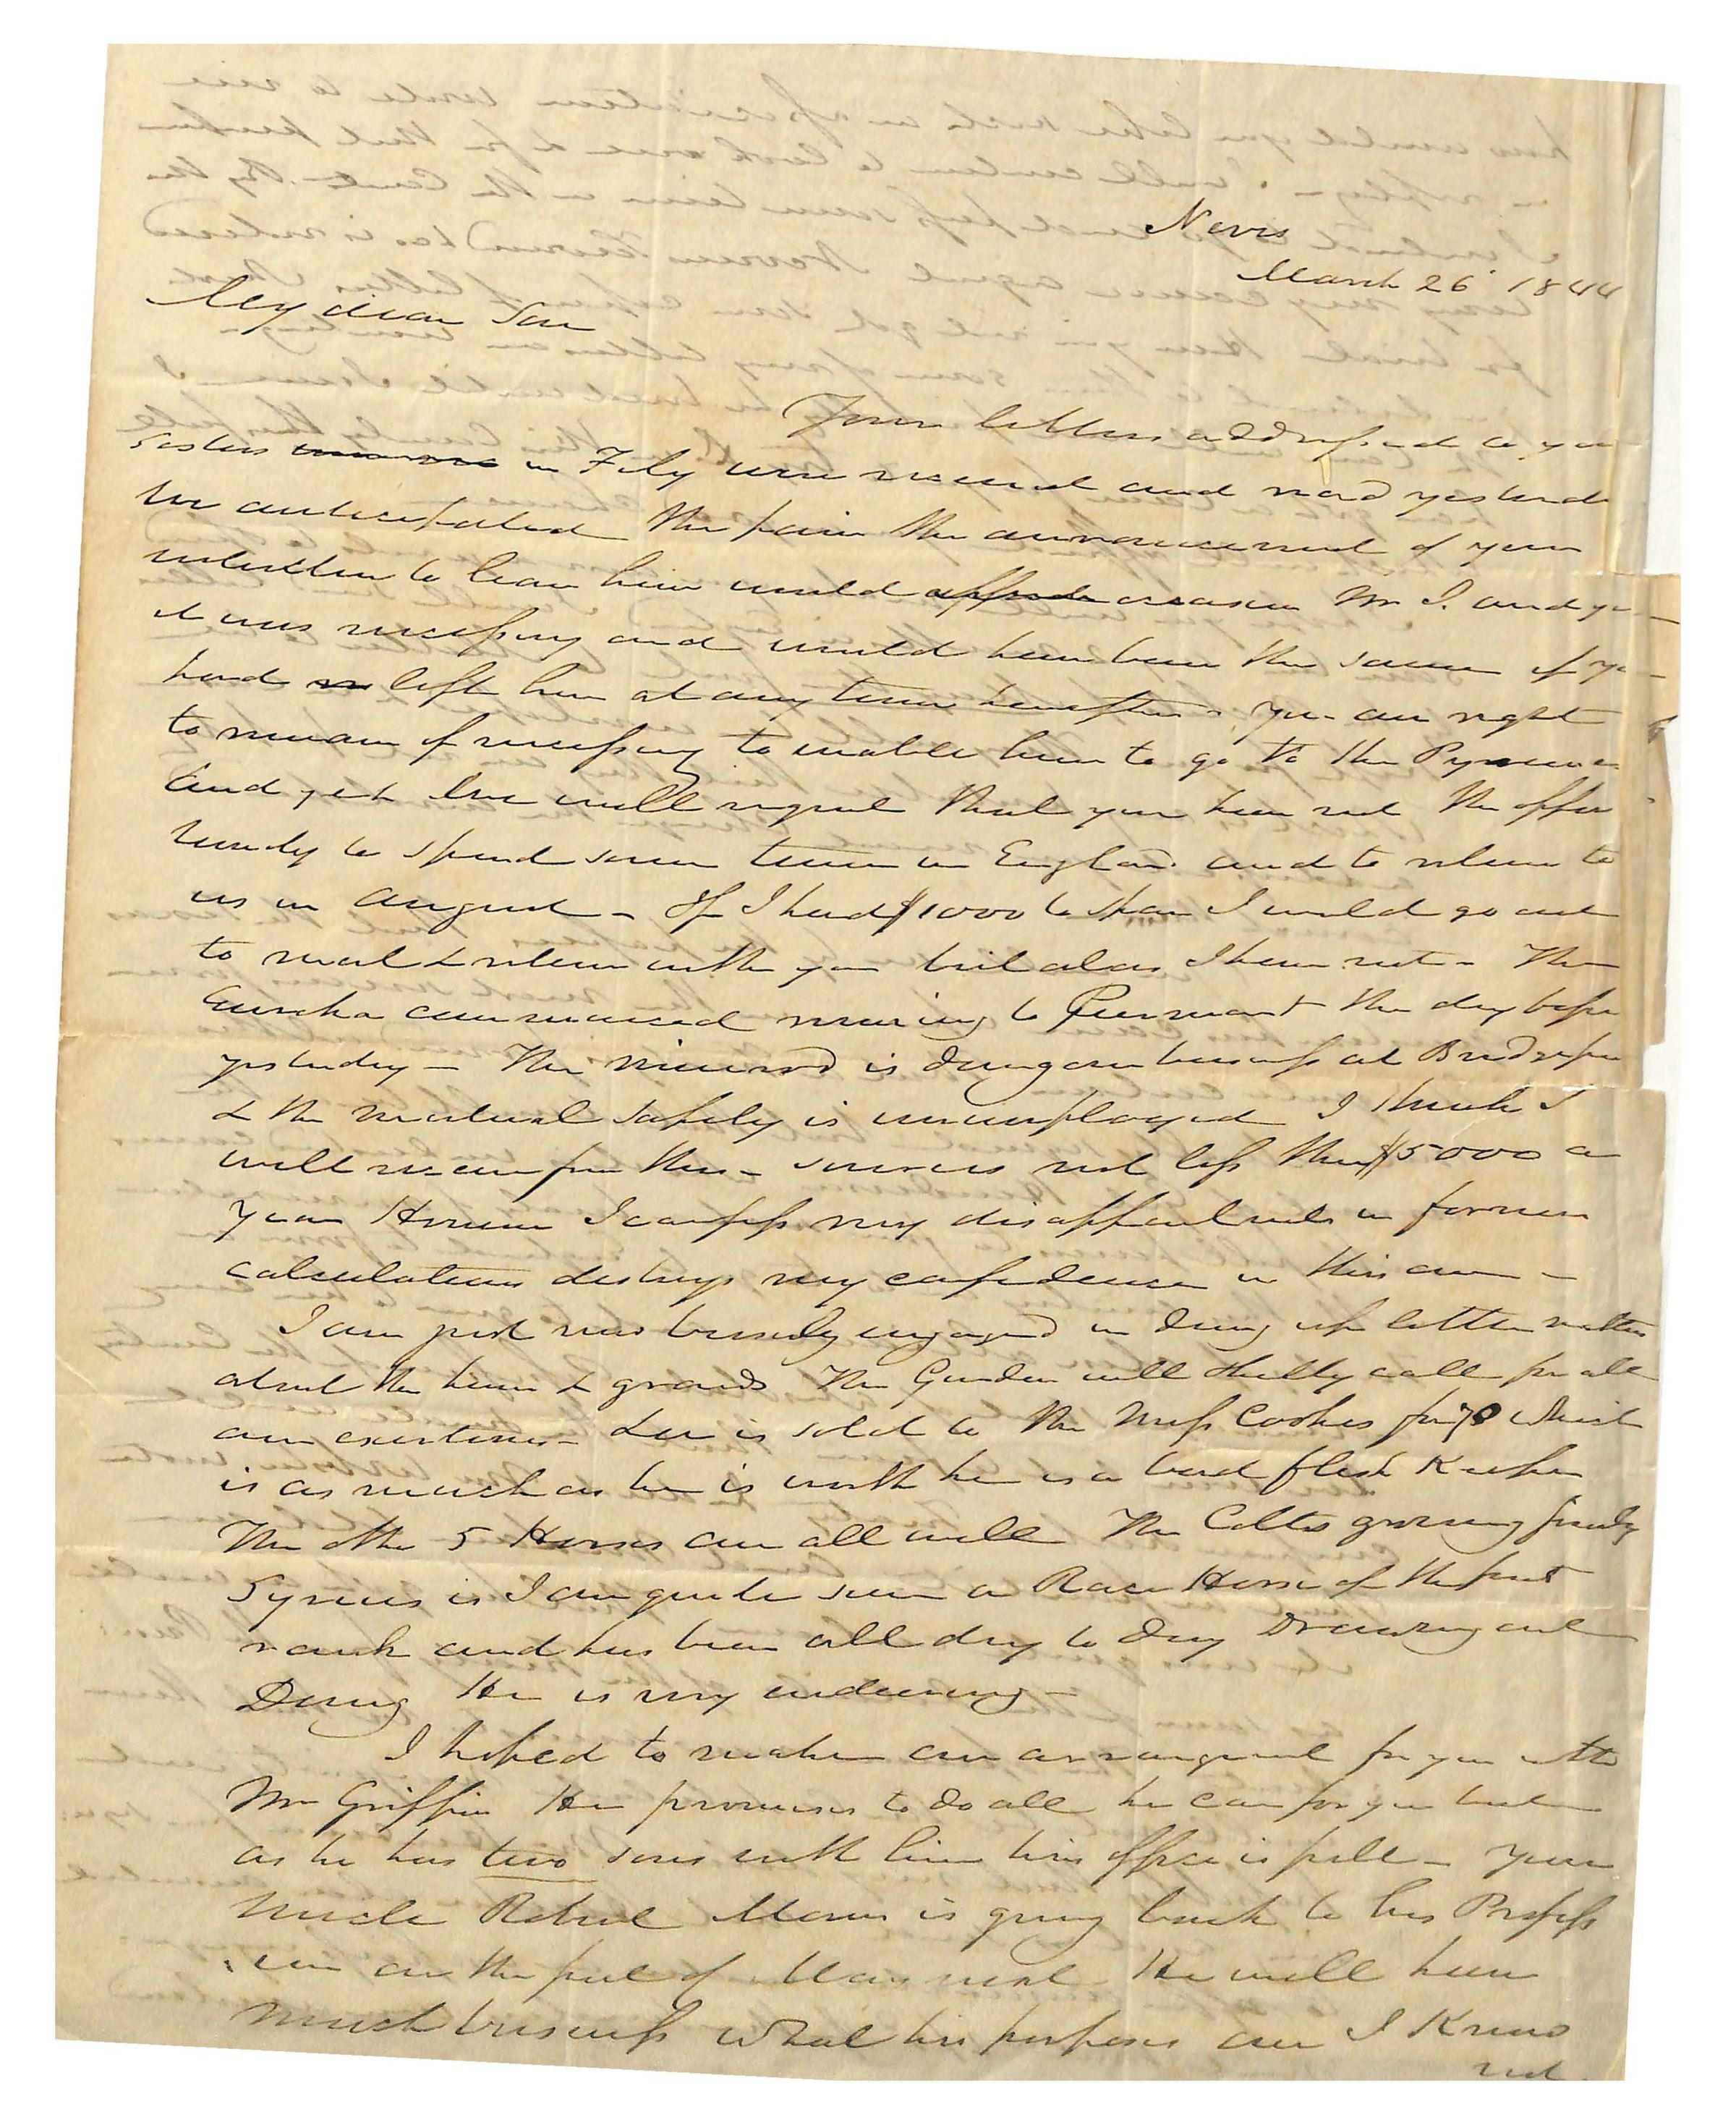 Nevis
March 26 1844
My dear Son
Your letters addressed to your
Sisters in Feby were received and read yesterda
We anticipated the pain the announcement of your
intention to leave him would occasion Mr I. and yo
it was necessary and would have been the same if yo
had left him at any time hereafter. You are right
to remain if necessary to enable him to go to the Pyrenees
and yet we will regret that you have not the oppor
tunity to spend some time in England and to return to
us in August - If I had $1000 to spare I would go out
to meet & return with you but alas I have not - The
Eureka commenced running to the day before
yesterday - The is doing our business at
& the mutual safety is unemployed I think I
will receive from these sources not less than $5000 a
year However I confess my disappointments in former
calculations destroys my confidence in this one -
I am just now busily engaged in doing up little matters
about the house & grounds The Garden will shortly call for all
our exertions - is sold to the Miss for 70 which
is as much as he is worth he is a bad flesh Keeper
The other 5 Horses are all well The Colts growing finely
Syrius is I am quite sure a Race Horse of the first
rank and has been all day to day Drawing out
Dung He is very enduring -
I hoped to make an arrangement for you with
Mr Griffin He promises to do all he can for you but
as he has two sons with him his office is full - Your
Uncle Robert Morris is going back to his Profess
ion on the first of May next He will have
much business What his purposes are I Know
not